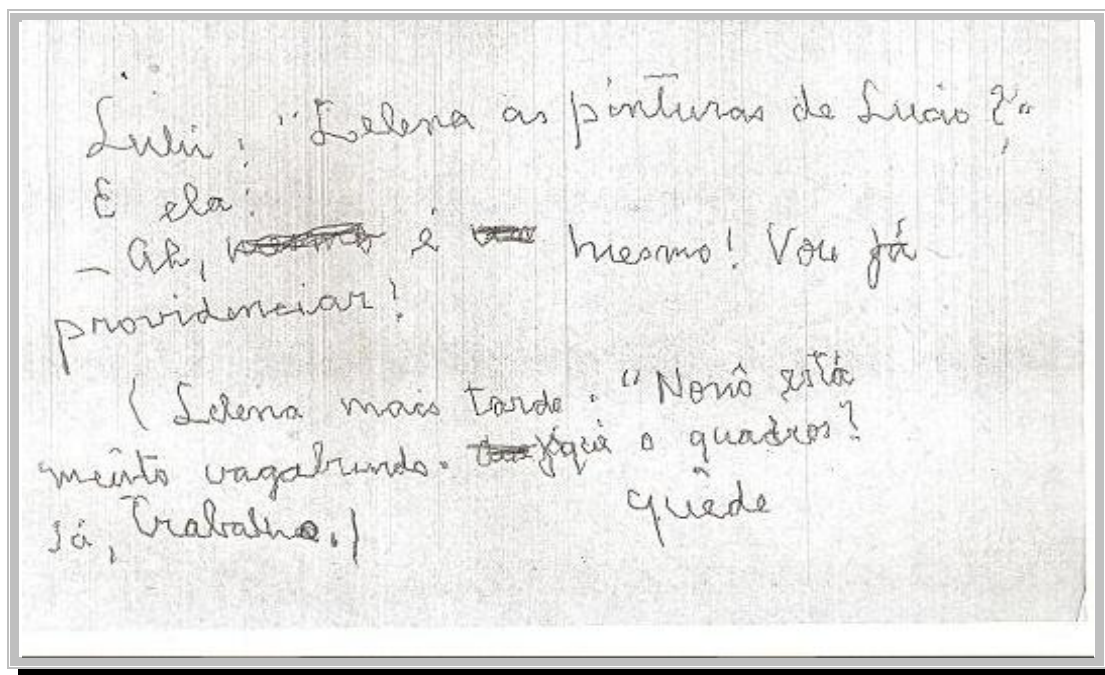 Lulu: "Lelena as pinturas de Lucio?"
E ela:
— Ah, é mesmo! Vou já
providenciar!
( Lelena mais tarde: "Nonô está
muito vagabundo. o quadros?
Já, Trabalho.)
quêde